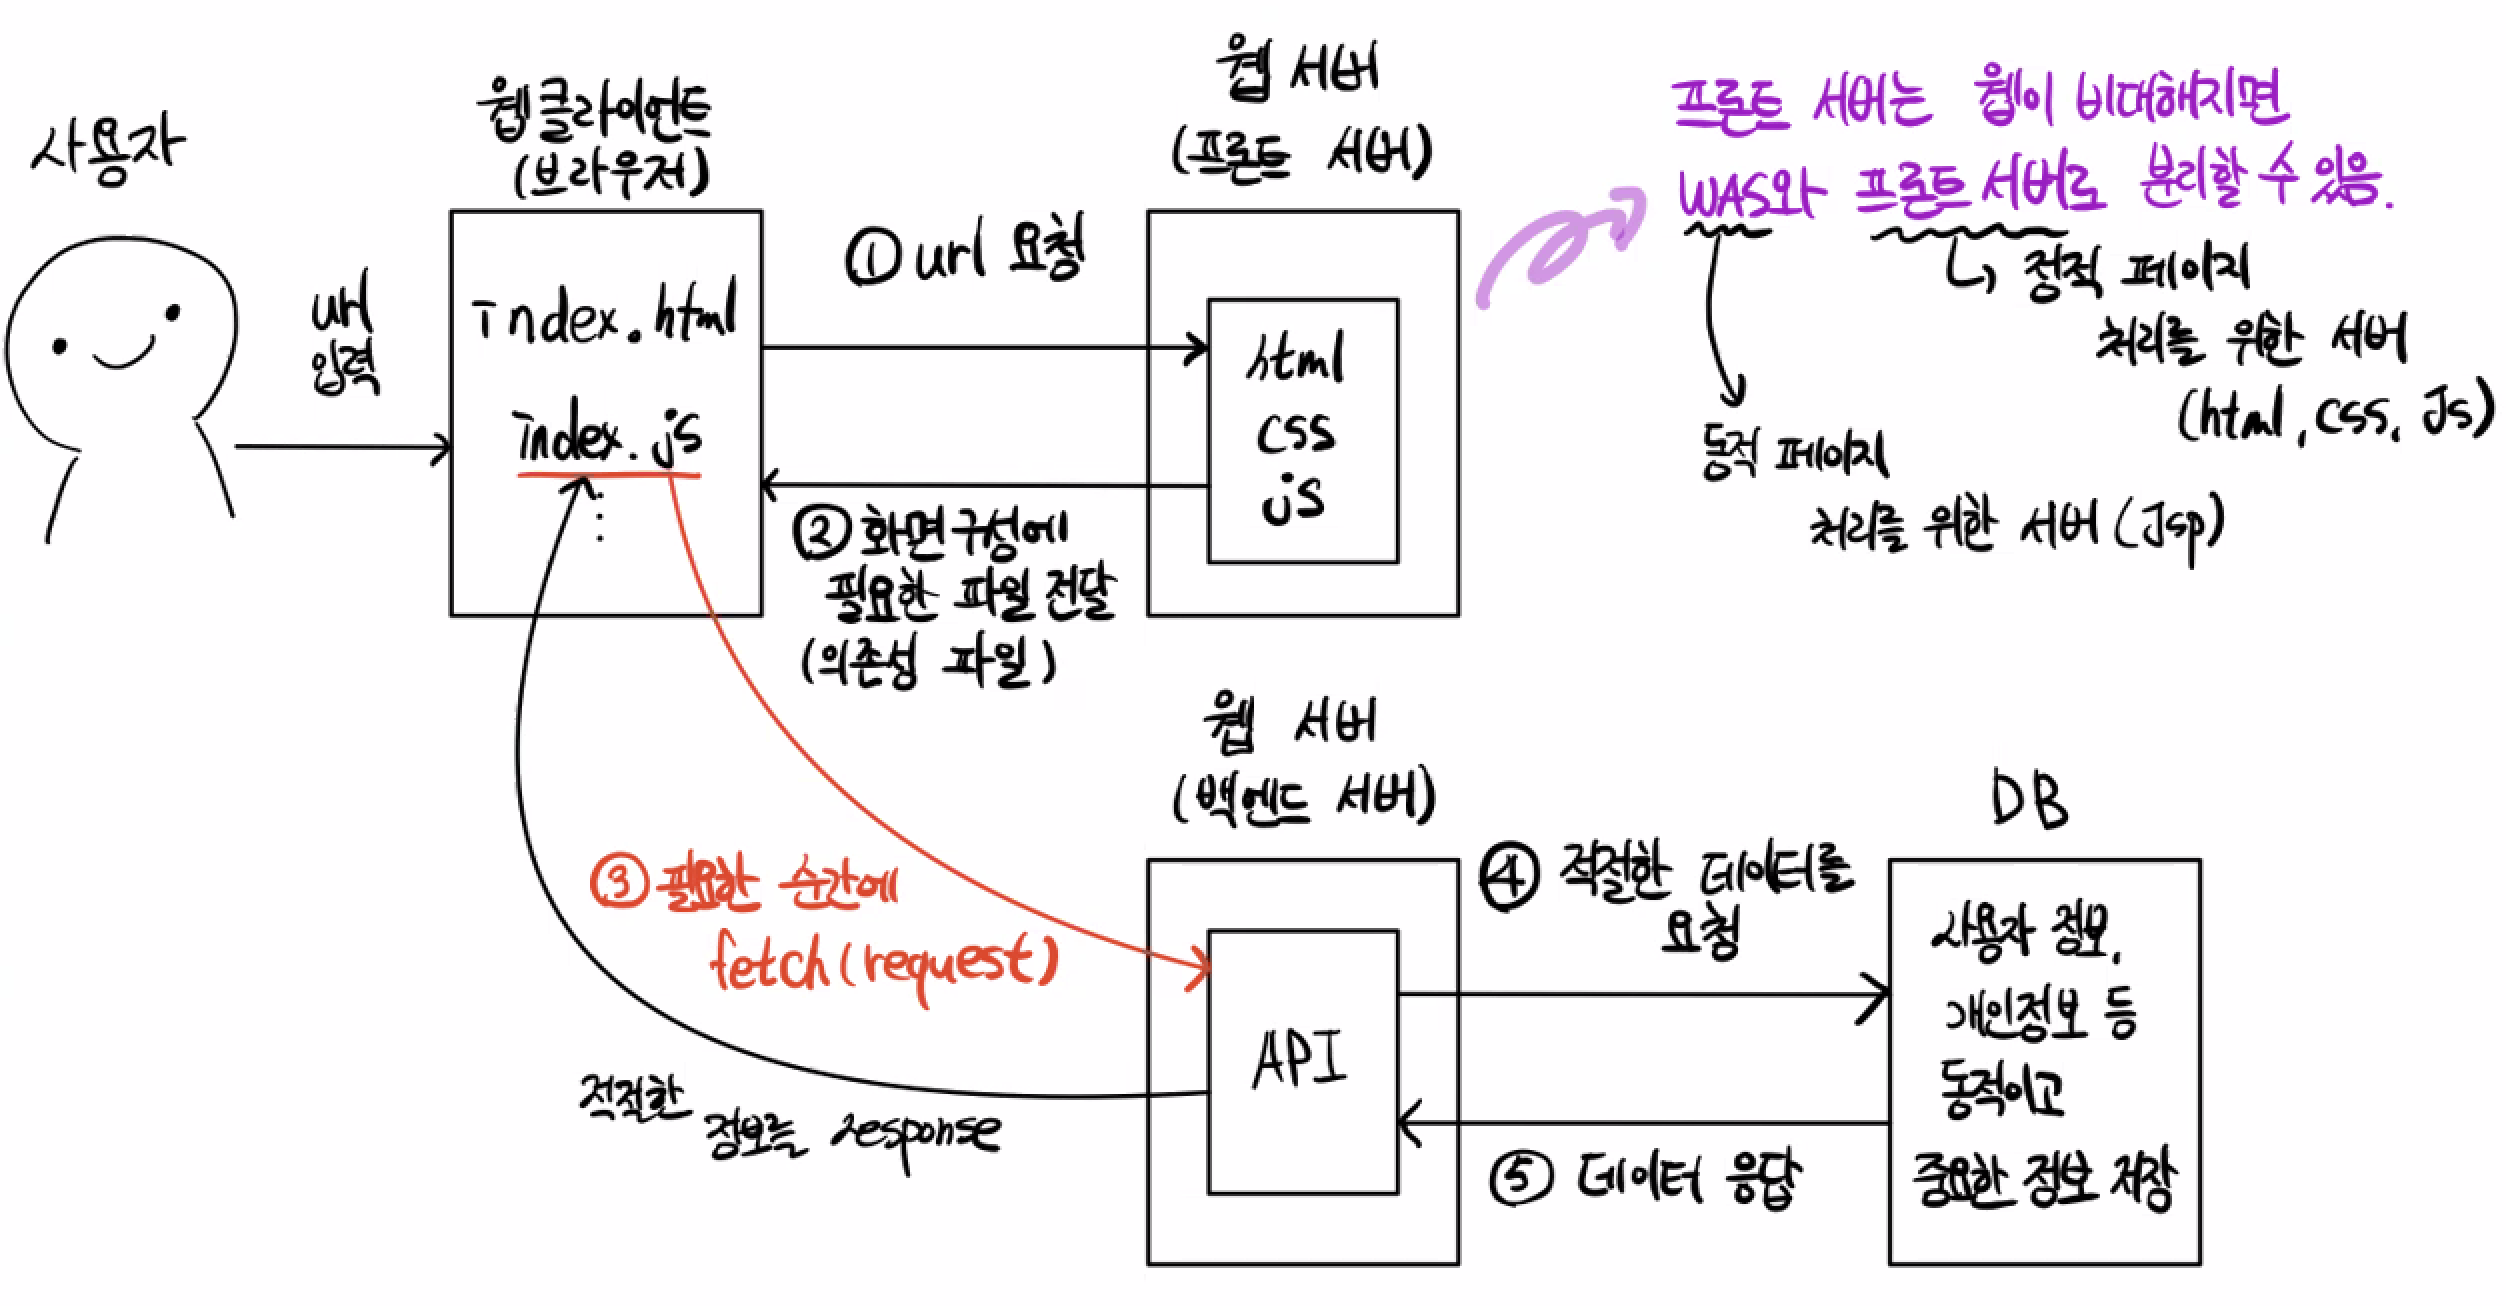 사용자
url
입력
웹클라이언트
(브라우저)
index.html
index.js
① url 요청
② 화면구성에
필요한 파일 전달
(의존성 파일)
웹 서버
(프론트 서버)
html
css
js
프론트 서버는 웹이 비대해지면
WAS와 프론트 서버로 분리할 수 있음.
정적 페이지
처리를 위한 서버
(html, css, Js)
동적 페이지
처리를 위한 서버 (Jsp)
③ 필요한 순간에
fetch (request)
적절한
정보를 response
웹 서버
(백엔드 서버)
API
④ 적절한 데이터를
요청
⑤ 데이터 응답
DB
사용자 정보,
개인정보 등
동적이고
중요한 정보 저장